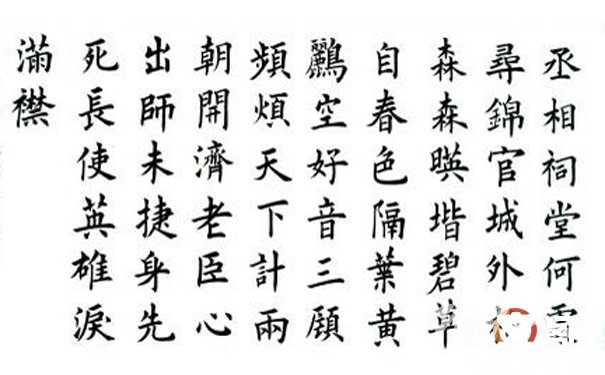 丞相祠堂何
尋錦官城外
森森暎堦碧草
自春色隔葉黃
鸝空好音三顧
頻煩天下計兩
朝開濟老臣心
出師未捷身先
死長使英雄淚
滿襟